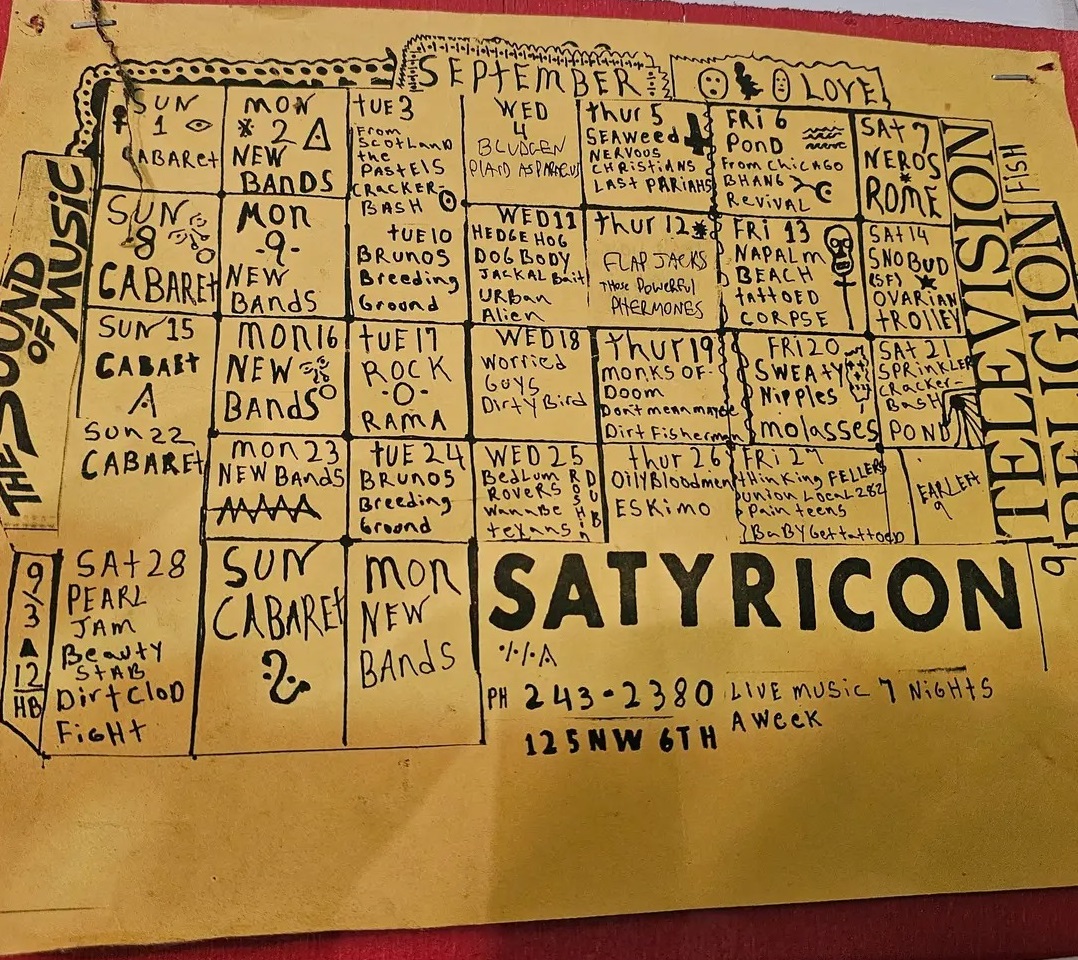 SEPTEMBER
LOVE
THE SOUND
OF MUSIC
SUN
1
CABARET
MON
2
NEW
BANDS
TUE 3
From
Scotland
the
PASTELS
CRACKER-
BASH
WED
4
BLUDGEN
PLAID ASPARAGUS
Thur 5
SEAWEED
NERVOUS
CHRISTIANS
LAST PARIAHS
FRI 6
POND
From CHICAGO
BHANG
REVIVAL
SAT 7
NEROS
ROME
SUN
8
CABARET
MON
-9-
NEW
BANDS
TUE 10
BRUNOS
Breeding
Ground
WED 11
HEDGE HOG
DOG BODY
JACKAL Bait
URBan
Alien
thur 12
FLAP JACKS
Those Powerful
PHERMONES
FRI 13
NAPALM
BEACH
tattoED
CORPSE
SAT 14
SNOBUD
(SF)
OVARIAN
tROLLEY
SUN 15
CABAEt
MON 16
NEW
BANDS
tUE 17
ROCK
-O-
RAMA
WED 18
Worried
GUYS
Dirty Bird
thur 19
MONKS OF
Doom
Dont mean maybe
Dirt Fisherman
FRI 20
SWEATY
Nipples
molasses
SAt 21
SPRINKLER
CRacker-
BasH
POND
SUN 22
CABARET
mon 23
NEW BANDS
tUE 24
BRUNOS
Breeding
Ground
WED 25
BEDLUM
ROVERS
WANABE
texans
thur 26
OilyBloodmen
ESKIMO
FRI 27
thinKing FELLERS
union Local 282
Pain teens
BaBY Get tattooED
TELEVISION
RELIGION
FISH
9
3
12
HB
SAt 28
PEARL
JAM
Beauty
STAB
Dirt CloD
FiGHt
SUN
CABARET
MON
NEW
BANDS
SATYRICON
PH 243-2380
125 NW 6TH
LIVE MUSIC 7 NIGHTS
A WEEK